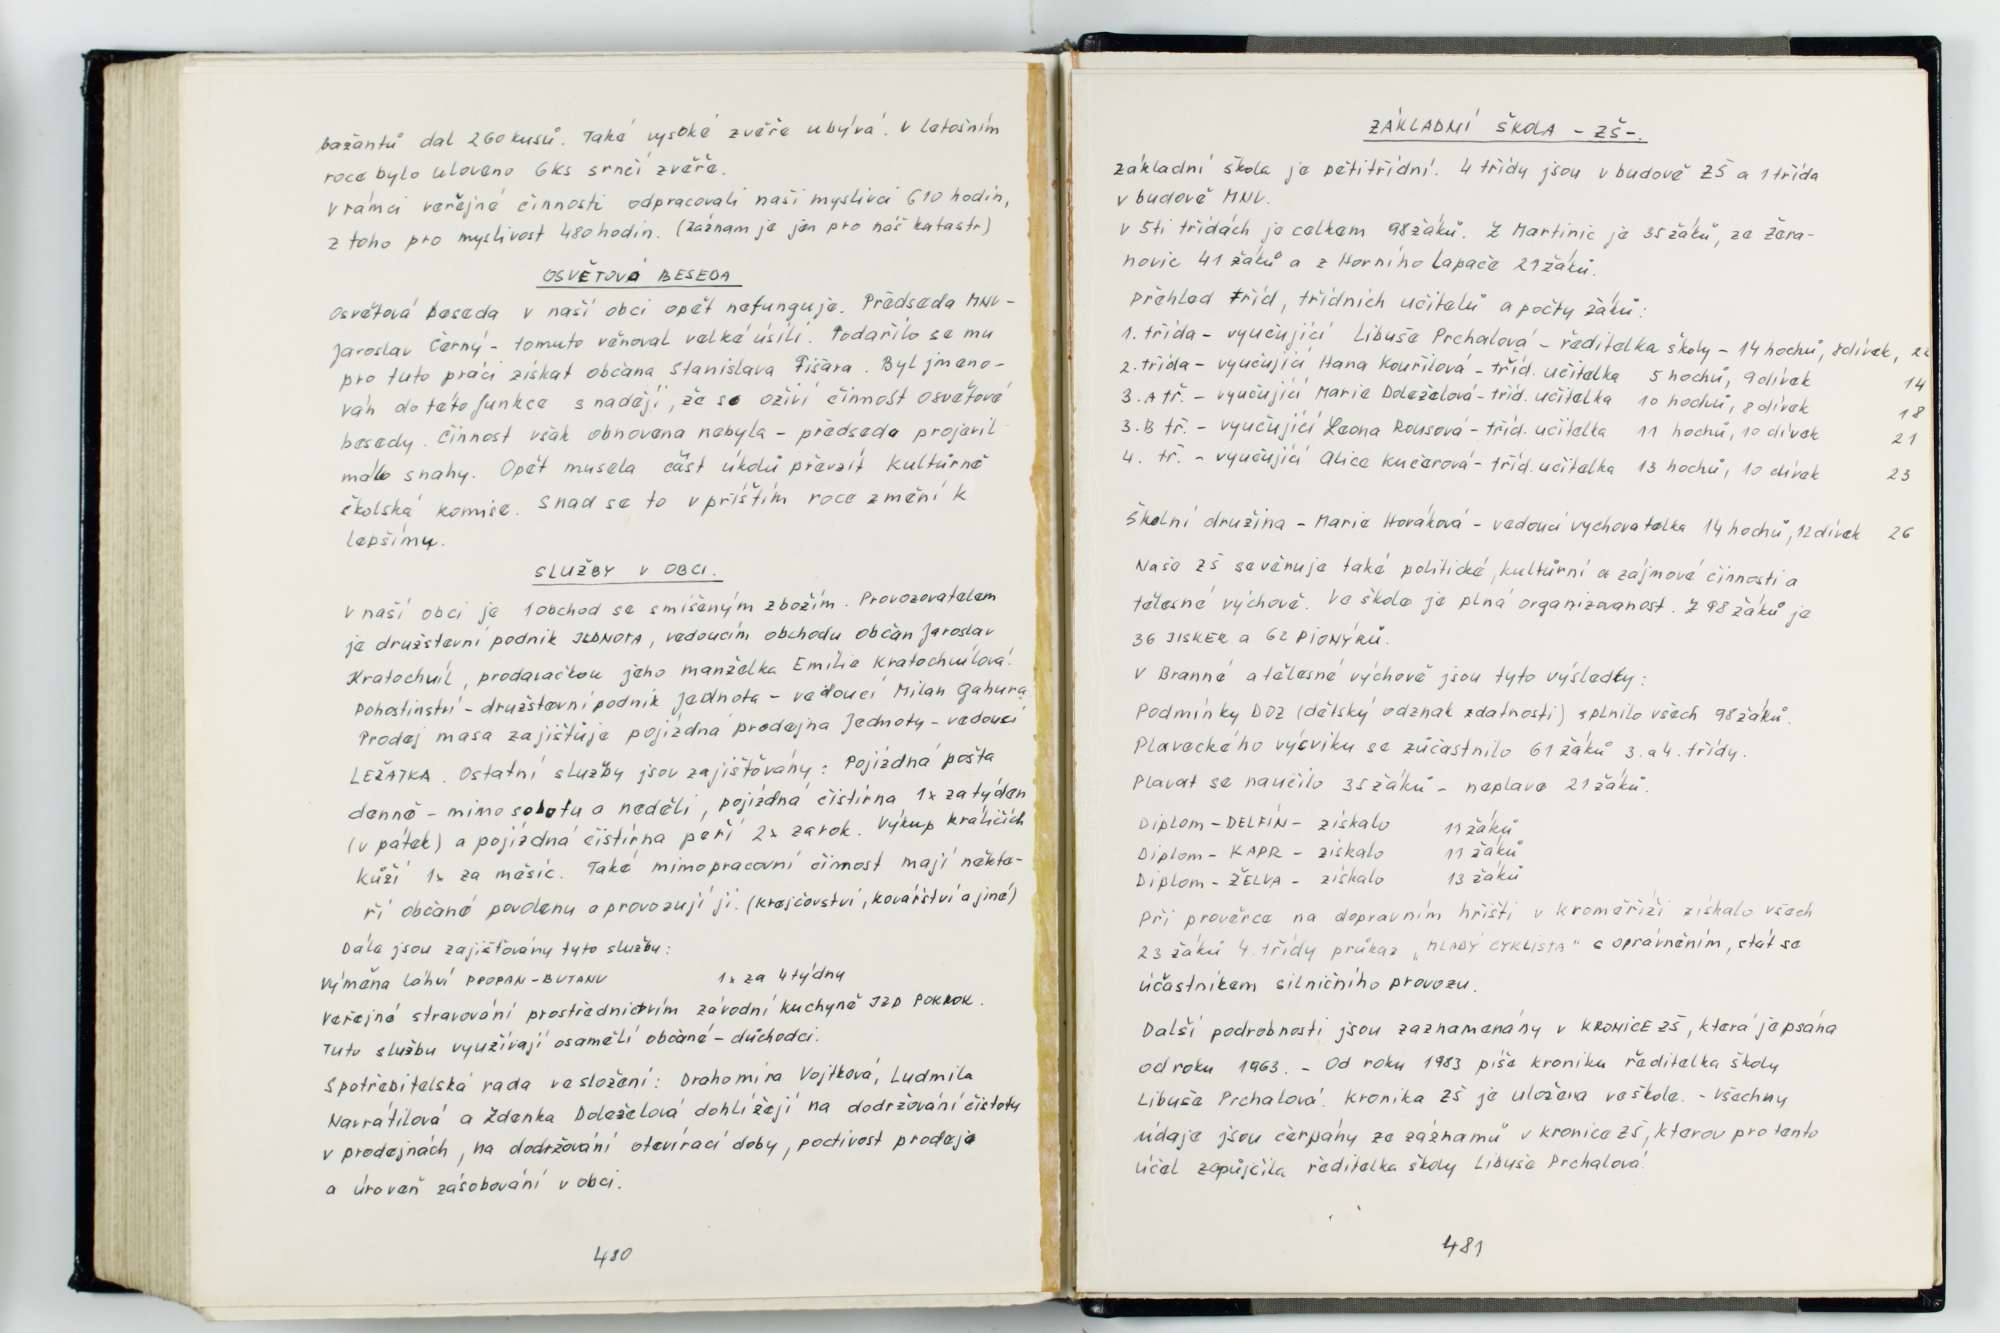 bažantů dal 260 kusů. Také vysoké zvěře ubývá. V letošním
roce bylo uloveno 6ks srnčí zvěře.
V rámci veřejné činnosti odpracovali naši myslivci 610 hodin,
z toho pro myslivost 480 hodin. (Záznam je jen pro náš katastr)
OSVĚTOVÁ BESEDA
Osvětová beseda v naší obci opět nefunguje. Předseda MNV -
Jaroslav Černý - tomuto věnoval velké úsilí. Podařilo se mu
pro tuto práci získat občana Stanislava Fišara. Byl jmeno-
ván do této funkce s nadějí, že se oživí činnost Osvětové
besedy. Činnost však obnovena nebyla - předseda projevil
málo snahy. Opět musela část úkolů převzít Kulturně
školská komise. Snad se to v příštím roce změní k
lepšímu.
SLUŽBY V OBCI.
V naší obci je 1 obchod se smíšeným zbožím. Provozovatelem
je družstevní podnik JEDNOTA, vedoucím obchodu občan Jaroslav
Kratochvíl, prodavačkou jeho manželka Emílie Kratochvílová.
Pohostinství - družstevní podnik Jednota - vedoucí Milan Gahura.
Prodej masa zajišťuje pojízdná prodejna Jednoty - vedoucí
LEŽATKA. Ostatní služby jsou zajišťovány: Pojízdná pošta
denně - mimo sobotu a neděli, pojízdná čistírna 1x za týden
(v pátek) a pojízdná čistírna peří 2x za rok. Výkup králičích
kůží 1x za měsíc. Také mimopracovní činnost mají někte-
ří občané povolenu a provozují ji. (Krejčovství, kovářství a jiné)
Dále jsou zajišťovány tyto služby:
Výměna láhví PROPAN-BUTANU 1x za 4 týdny
Veřejné stravování prostřednictvím závodní kuchyně JZD POKROK.
Tuto službu využívají osamělí občané - důchodci.
Spotřebitelská rada ve složení: Drahomíra Vojtková, Ludmila
Navrátilová a Zdenka Doleželová dohlížejí na dodržování čistoty
v prodejnách, na dodržování otevírací doby, poctivost prodeje
a úroveň zásobování v obci.
480
ZÁKLADNÍ ŠKOLA - ZŠ-.
Základní škola je pětitřídní. 4 třídy jsou v budově ZŠ a 1 třída
v budově MNV.
V 5ti třídách je celkem 98 žáků. Z Martinic je 35 žáků, ze Žera-
novic 41 žáků a z Horního Lapače 21 žáků.
Přehled tříd, třídních učitelů a počty žáků:
1. třída - vyučující Libuše Prchalová - ředitelka školy - 14 hochů, 8 dívek, 22
2. třída - vyučující Hana Kouřilová - tříd. učitelka 5 hochů, 9 dívek 14
3. A tř. - vyučující Marie Doleželová - tříd. učitelka 10 hochů, 8 dívek 18
3. B tř. - vyučující Leona Rousová - tříd. učitelka 11 hochů, 10 dívek 21
4. tř. - vyučující Alice Kučerová - tříd. učitelka 13 hochů, 10 dívek 23
Školní družina - Marie Horáková - vedoucí vychovatelka 14 hochů, 12 dívek 26
Naše ZŠ se věnuje také politické, kulturní a zájmové činnosti a
tělesné výchově. Ve škole je plná organizovanost. Z 98 žáků je
36 JISKER a 62 PIONÝRŮ.
V Branné a tělesné výchově jsou tyto výsledky:
Podmínky DOZ (dětský odznak zdatnosti) splnilo všech 98 žáků.
Plaveckého výcviku se zúčastnilo 61 žáků 3. a 4. třídy.
Plavat se naučilo 35 žáků - neplave 21 žáků.
Diplom - DELFÍN - získalo 11 žáků
Diplom - KAPR - získalo 11 žáků
Diplom - ŽELVA - získalo 13 žáků
Při prověrce na dopravním hřišti v Kroměříži získalo všech
23 žáků 4. třídy průkaz „MLADÝ CYKLISTA" s oprávněním, stát se
účastníkem silničního provozu.
Další podrobnosti jsou zaznamenány v KRONICE ZŠ, která je psána
od roku 1963. - Od roku 1983 píše kroniku ředitelka školy
Libuše Prchalová. Kronika ZŠ je uložena ve škole. - Všechny
údaje jsou čerpány ze záznamů v kronice ZŠ, kterou pro tento
účel zapůjčila ředitelka školy Libuše Prchalová.
481